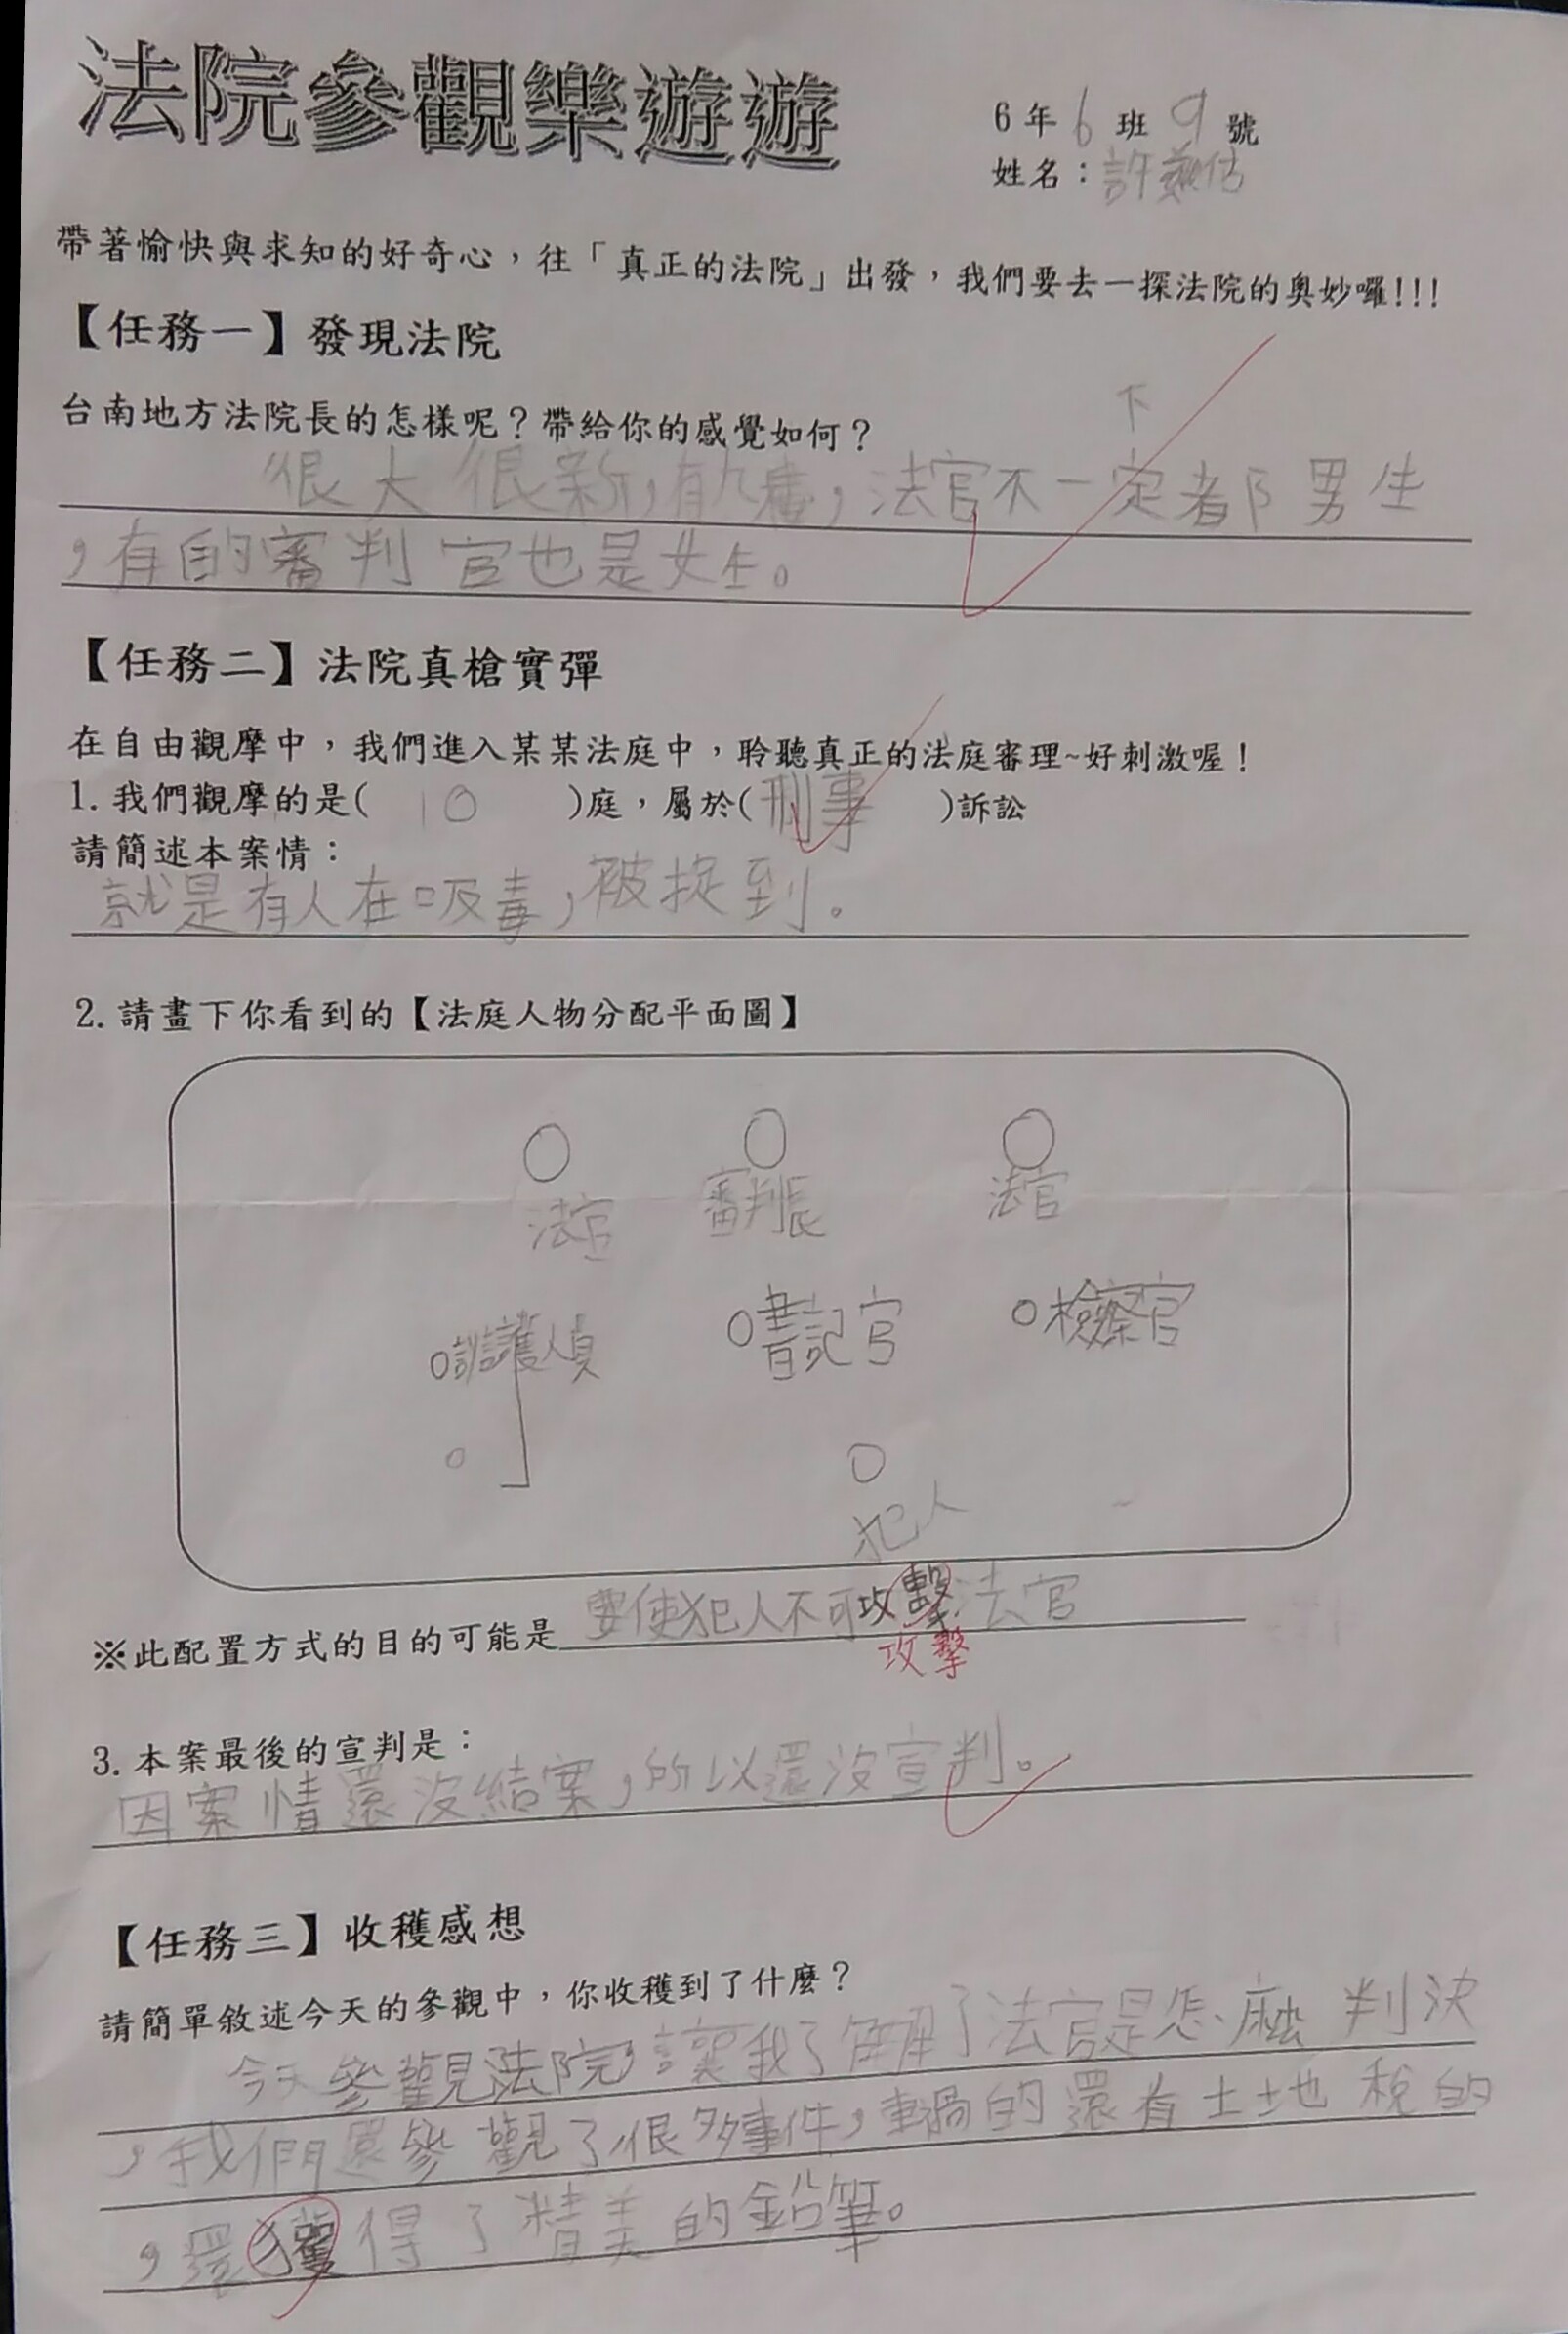 法院參觀樂遊遊
6年6班9號
姓名：許
帶著愉快與求知的好奇心，往「真正的法院」出發，我們要去一探法院的奧妙囉!!!
【任務一】發現法院
台南地方法院長的怎樣呢？帶給你的感覺如何？
下
很大很新，有九樓，法官不一定都男生
，有的審判官也是女生。
【任務二】法院真槍實彈
在自由觀摩中，我們進入某某法庭中，聆聽真正的法庭審理~好刺激喔！
1. 我們觀摩的是( 10 )庭，屬於( 刑事 )訴訟
請簡述本案情：
就是有人在吸毒，被捉到。
2. 請畫下你看到的【法庭人物分配平面圖】
法官 審判長 法官
護人員 書記官 檢察官
犯人
※此配置方式的目的可能是 要使犯人不可攻擊法官
攻擊
3. 本案最後的宣判是：
因案情還沒結案，所以還沒宣判。
【任務三】收穫感想
請簡單敘述今天的參觀中，你收穫到了什麼？
今天參觀法院，讓我了解了法官是怎麼判決
，我們還參觀了很多事件，車禍的還有土地稅的
，還獲得了精美的鉛筆。